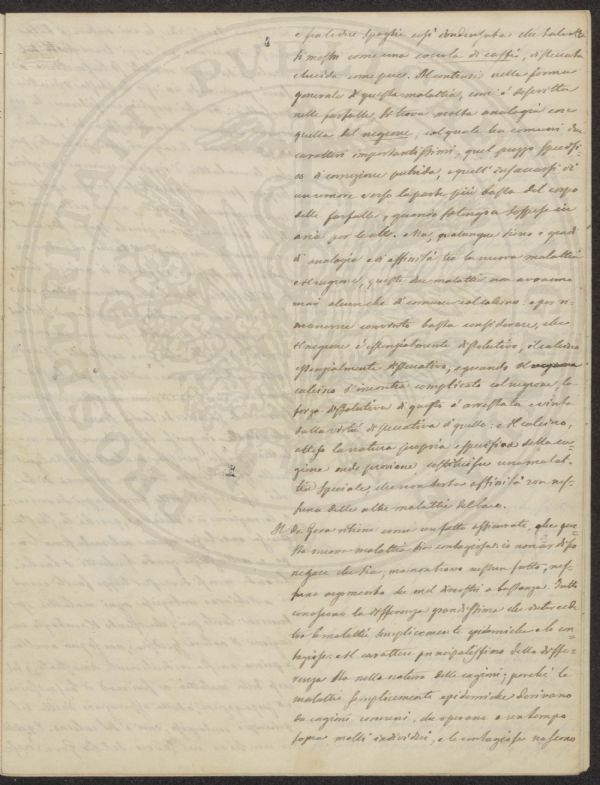 e fra le dure spoglie così condensata che talvolta
si mostra come una coccola di caffè, disseccata
e lucida come pece. Attenendosi nella forma
generale di questa malattia, com'è descritta
nelle farfalle, si trova molta analogia con
quella del negrone, col quale ha comuni due
caratteri importantissimi, quel puzzo specifi-
co di corruzione putrida, e quell'insaccarsi di
un umore verso la parte più bassa del corpo
delle farfalle, quando si tengon sospese in
aria per le ali. Ma, qualunque siano i gradi
di analogia e di affinità tra la nuova malattia
e il negrone, queste due malattie non avranno
mai alcunchè di comune col calcino: e per ri-
manerne convinto basta considerare, che
il negrone è essenzialmente dissolutivo, il calcino
essenzialmente disseccativo, e quando il
calcino s'incontra complicato col negrone, la
forza dissolutiva di questo è arrestata e vinta
dalla virtù disseccativa di quello: e il calcino,
attesa la natura propria e specifica della ca-
gione onde proviene, costituisce una malat-
tia speciale, che non ha affinità con nes-
suna delle altre malattie del baco.
Il De Gera ritiene come un fatto assicurato, che que-
sta nuova malattia sia contagiosa: io non ardisco
negare che sia, ma non trovo nessun fatto, nes-
suno argomento che mel dimostri a bastanza. Tutti
conoscono la differenza grandissima che intercede
tra le malattie semplicemente epidemiche e le con-
tagiose. Il carattere principalissimo della diffe-
renza sta nella natura delle cagioni; perchè le
malattie semplicemente epidemiche derivano
da cagioni comuni, che operano a un tempo
sopra molti individui, e le contagiose nascono